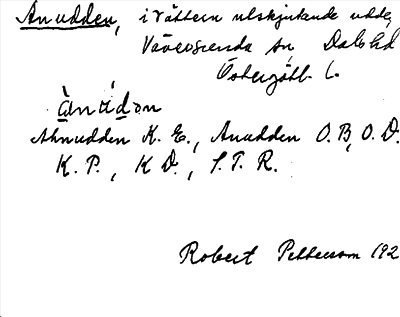 Anudden, i Vättern utskjutande udde,
Västra sn Dals hd
Östergötl. l.
ànúdɔn
Ahnudden K. E., Anudden O. B, O. D.
K. P., K D., S. T. R.
Robert Pettersson 192